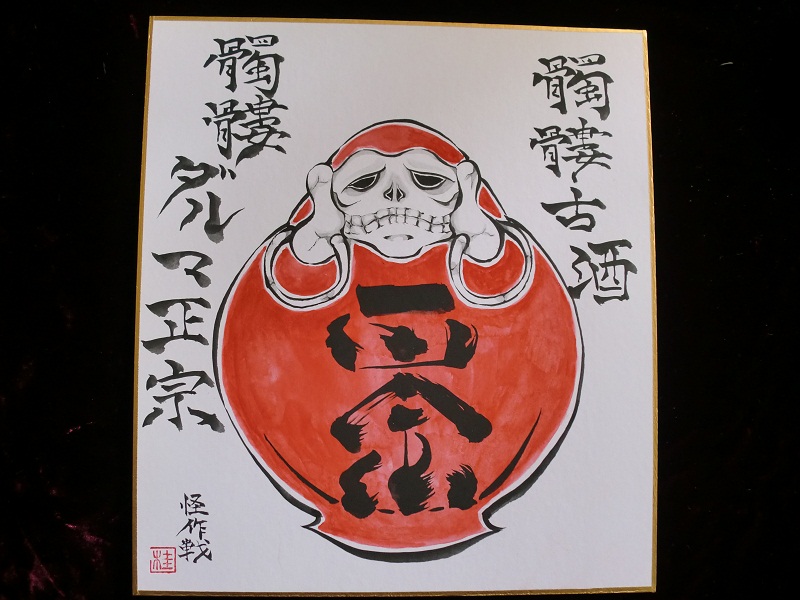 髑髏古酒
髑髏ダルマ正宗
怪作戦
桂